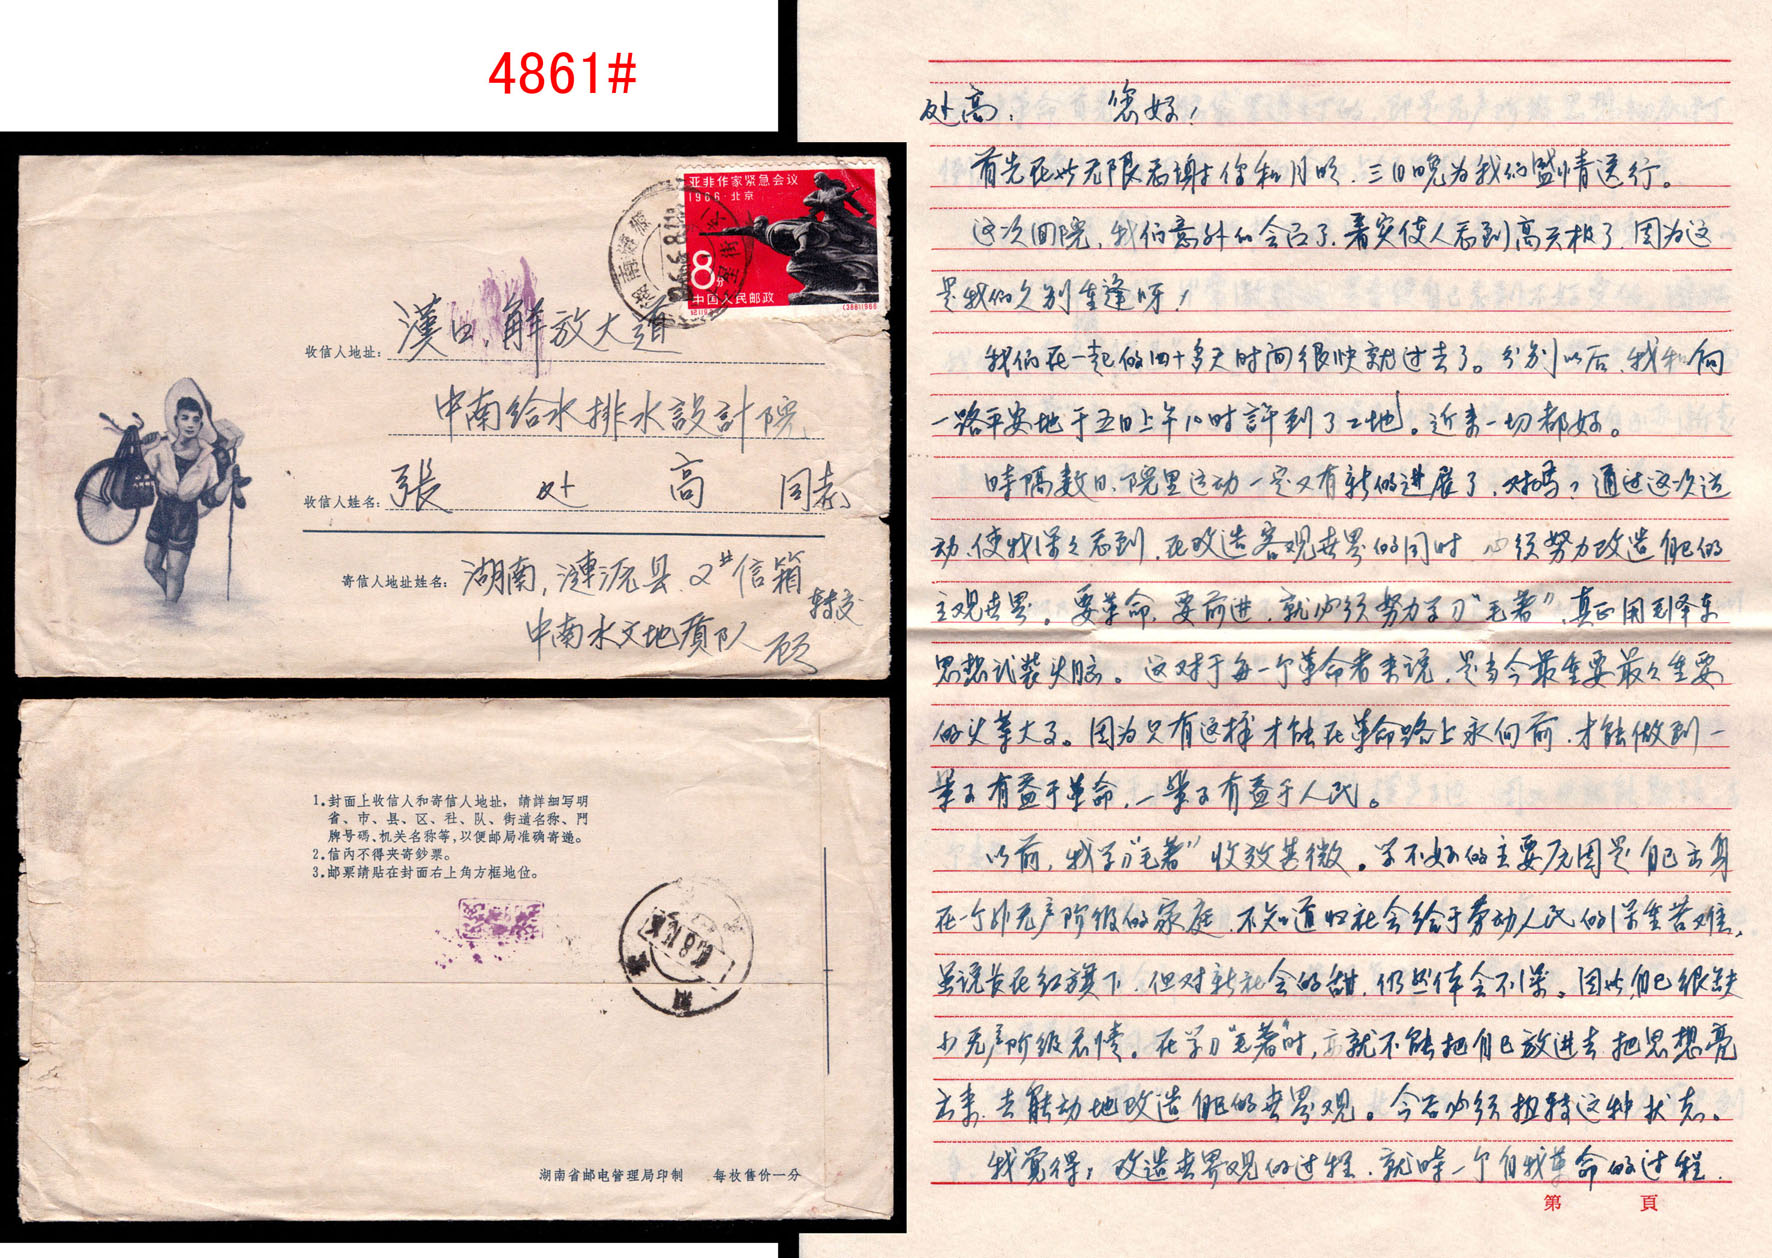 4861#
亚非作家紧急会议
1966·北京
8分
中国人民邮政
湖南涟源
1966.8.11
收信人地址：漢口，解放大道
中南给水排水設計院
收信人姓名：張处高同志
寄信人地址姓名：湖南，漣源县2#信箱
转交
中南水文地質队 顾
1.封面上收信人和寄信人地址，請詳細写明
省、市、县、区、社、队、街道名称、門
牌号碼、机关名称等，以便邮局准确寄递。
2.信內不得夹寄鈔票。
3.邮票請貼在封面右上角方框地位。
湖南省邮电管理局印制 每枚售价一分
处高： 您好！
首先在此无限感謝你和月明，三日晚为我们盛情送行。
这次回院，我们意外的会合了，着实使人感到高兴极了，因为这
是我们久别重逢呀！
我们在一起的四十多天时间很快就过去了。分别以后，我和何
一路平安地于五日上午10时許到了工地。近来一切都好。
時隔数日，院里运动一定又有新的进展了，对嗎？通过这次运
动，使我深深感到，在改造客观世界的同时，必须努力改造自己的
主观世界。要革命，要前进，就必须努力学习"毛著"，真正用毛泽东
思想武装头脑。这对于每一个革命者来说，是当今最重要最最重要
的头等大事。因为只有这样才能在革命路上永向前，才能做到一
举了有益于革命，一举了有益于人民。
以前，我学习"毛著"收效甚微。学不好的主要原因是自己出身
在一个非无产阶级的家庭，不知道旧社会给于劳动人民的深重苦难，
虽说长在红旗下，但对新社会的甜，仍然体会不深。因此自己很缺
少无产阶级感情。在学习"毛著"时，亦就不能把自己放进去，把思想亮
出来，去能动地改造自己的世界观。今后必须扭转这种状态。
我觉得，改造世界观的过程，就時一个自我革命的过程，
第 頁